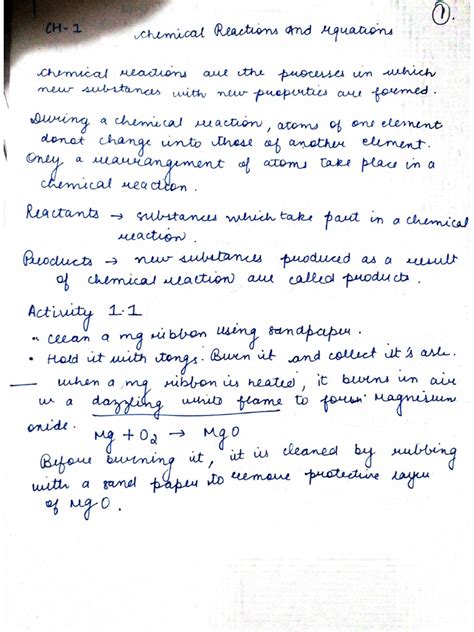 1.
CH-1 Chemical Reactions and Equations
Chemical reactions are the processes in which
new substances with new properties are formed.
During a chemical reaction, atoms of one element
donot change into those of another element.
Only a rearrangement of atoms take place in a
chemical reaction.
Reactants → substances which take part in a chemical
reaction.
Products → new substances produced as a result
of chemical reaction are called products.
Activity 1.1
• clean a mg ribbon using sandpaper.
• Hold it with tongs. Burn it and collect it's ash.
when a mg ribbon is heated, it burns in air
w a dazzling white flame to form Magnesium
oxide.
Mg + O2 → MgO
Before burning it, it is cleaned by rubbing
with a sand paper to remove protective layer
of MgO.